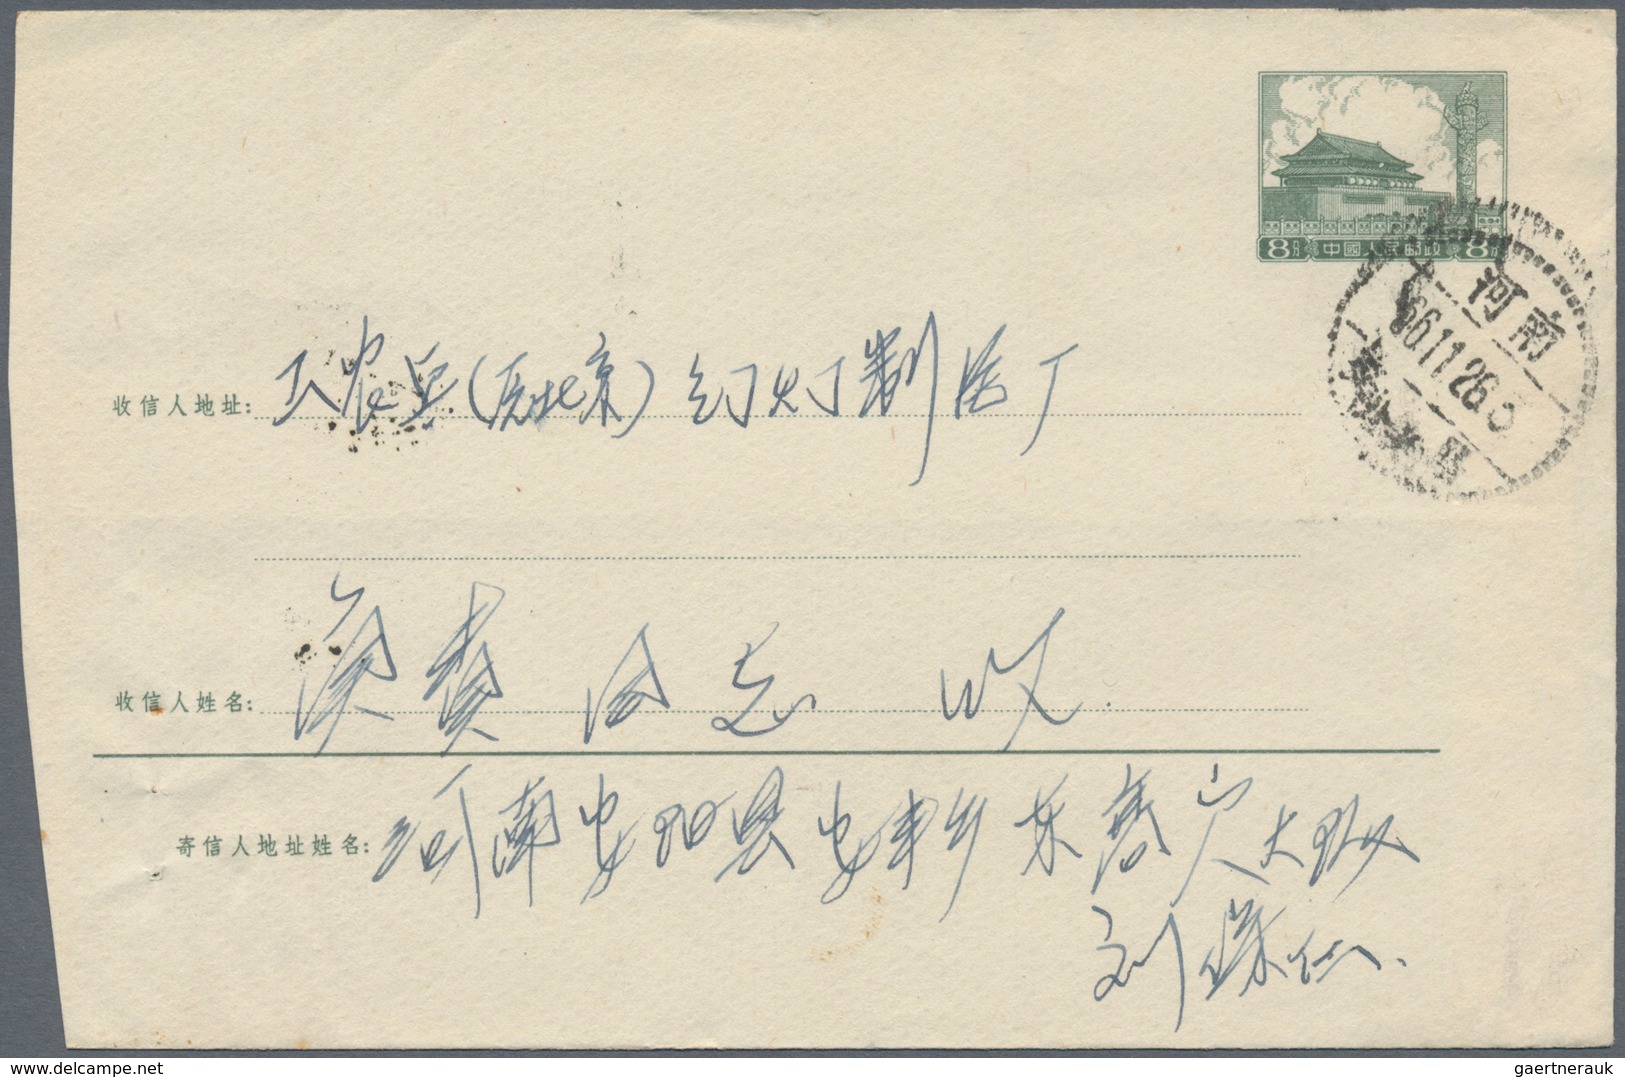 8分 中國人民邮政 8分
河南
66.11.26
收信人地址: 工农兵(原北京)幻灯制造厂
收信人姓名: 同志 收
寄信人地址姓名: 河南安阳县安丰乡东高穴大队
刘保仁
delcampe.net
gaertnerauk